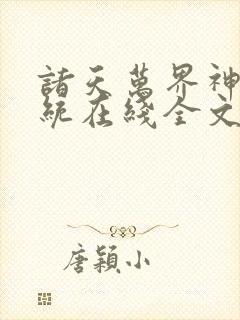 諸天萬界神
統在綫全文
唐穎小